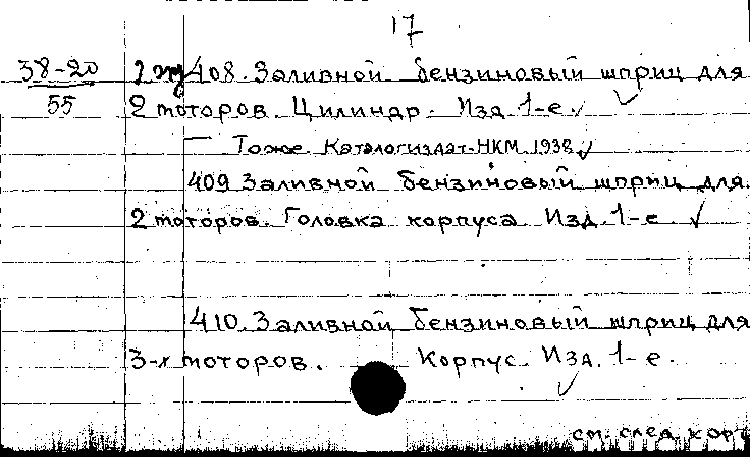 17
38-20 408. Заливной бензиновый шприц для
55 2 моторов. Цилиндр. Изд 1-е.
— Тоже Каталогиздат-НКМ 1938
409 Заливной бензиновый шприц для
2 моторов. Головка корпуса Изд 1-е
410. Заливной бензиновый шприц для
3-х моторов. Корпус. Изд. 1-е.
см. след. карт